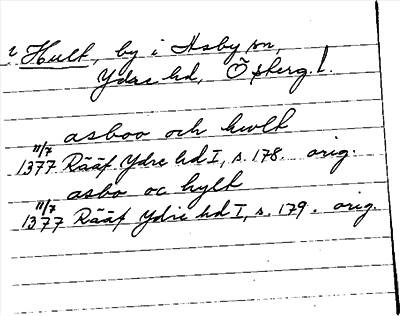 ? Hult, by i Asby sn,
Ydre hd, Östergl.
asboo och hwlt
11/7
1377 Rääf Ydre hd I, s. 178. orig.
asbo oc hylt
11/7
1377 Rääf Ydre hd I, s. 179. orig.